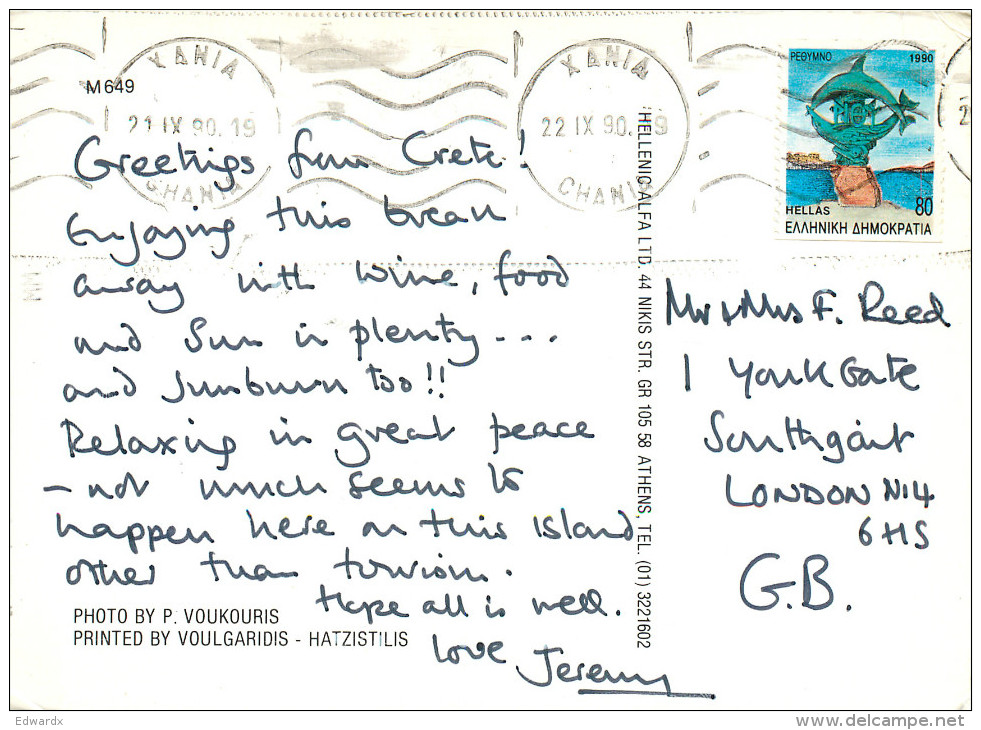 M649
ΧΑΝΙΑ
21 IX 90.19
CHANIA
ΧΑΝΙΑ
22 IX 90. 19
CHANIA
ΡΕΘΥΜΝΟ 1990
HELLAS 80
ΕΛΛΗΝΙΚΗ ΔΗΜΟΚΡΑΤΙΑ
Greetings from Crete!
Enjoying this break
away with wine, food
and Sun in plenty---
and sunburn too!!
Relaxing in great peace
- not much seems to
happen here on this island
other than tourism.
Hope all is well.
Love Jeremy
PHOTO BY P. VOUKOURIS
PRINTED BY VOULGARIDIS - HATZISTILIS
HELLENIC ALFA LTD. 44 NIKIS STR. GR 105 58 ATHENS, TEL. (01) 3221602
Mr & Mrs F. Reed
1 York Gate
Southgate
LONDON N14
6HS
G.B.
Edwardx
delcampe.net